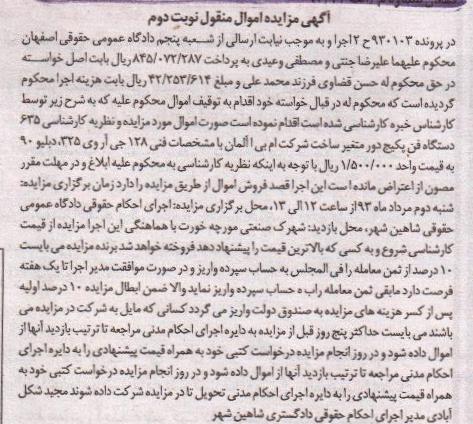 آگهی مزایده اموال منقول نوبت دوم
در پرونده ۹۳۰۱۰۳ ح ۲ اجرا و به موجب نیابت ارسالی از شعبه پنجم دادگاه عمومی حقوقی اصفهان
محکوم علیهما علیرضا جنتی و مصطفی وعیدی به پرداخت ۸۴۵/۰۷۲/۲۸۷ ریال بابت اصل خواسته
در حق محکوم له حسن قضاوی فرزند محمد علی و مبلغ ۴۲/۲۵۳/۶۱۴ ریال بابت هزینه اجرا محکوم
گردیده است که محکوم له در قبال خواسته خود اقدام به توقیف اموال محکوم علیه که به شرح زیر توسط
کارشناس خبره کارشناسی شده است اقدام نموده است صورت اموال مورد مزایده و نظریه کارشناسی ۶۳۵
دستگاه فن پکیج دور متغیر ساخت شرکت ام بی ا آلمان با مشخصات فنی ۱۲۸ جی آر وی ۳۲۵، دبلیو ۹۰
به قیمت واحد ۱/۵۰۰/۰۰۰ ریال با توجه به اینکه نظریه کارشناسی به محکوم علیه ابلاغ و در مهلت مقرر
مصون از اعتراض مانده است این اجرا قصد فروش اموال از طریق مزایده را دارد زمان برگزاری مزایده:
شنبه دوم مرداد ماه ۹۳ از ساعت ۱۲ الی ۱۳، محل برگزاری مزایده: اجرای احکام حقوقی دادگاه عمومی
حقوقی شاهین شهر، محل بازدید: شهرک صنعتی مورچه خورت با هماهنگی این اجرا مزایده از قیمت
کارشناسی شروع و به کسی که بالاترین قیمت را پیشنهاد دهد فروخته خواهد شد برنده مزایده می بایست
۱۰ درصد از ثمن معامله را فی المجلس به حساب سپرده واریز و در صورت موافقت مدیر اجرا تا یک هفته
فرصت دارد مابقی ثمن معامله راب ه حساب سپرده واریز نماید والا ضمن ابطال مزایده ۱۰ درصد اولیه
پس از کسر هزینه های مزایده به صندوق دولت واریز می گردد کسانی که مایل به شرکت در مزایده می
باشند می بایست حداکثر پنج روز قبل از مزایده به دایره اجرای احکام مدنی مراجعه تا ترتیب بازدید آنها از
اموال داده شود و در روز انجام مزایده درخواست کتبی خود به همراه قیمت پیشنهادی را به دایره اجرای
احکام مدنی مراجعه تا ترتیب بازدید آنها از اموال داده شود و در روز انجام مزایده درخواست کتبی خود به
همراه قیمت پیشنهادی را به دایره اجرای احکام مدنی تحویل تا در مزایده شرکت داده شوند مجید شکل
آبادی مدیر اجرای احکام حقوقی دادگستری شاهین شهر